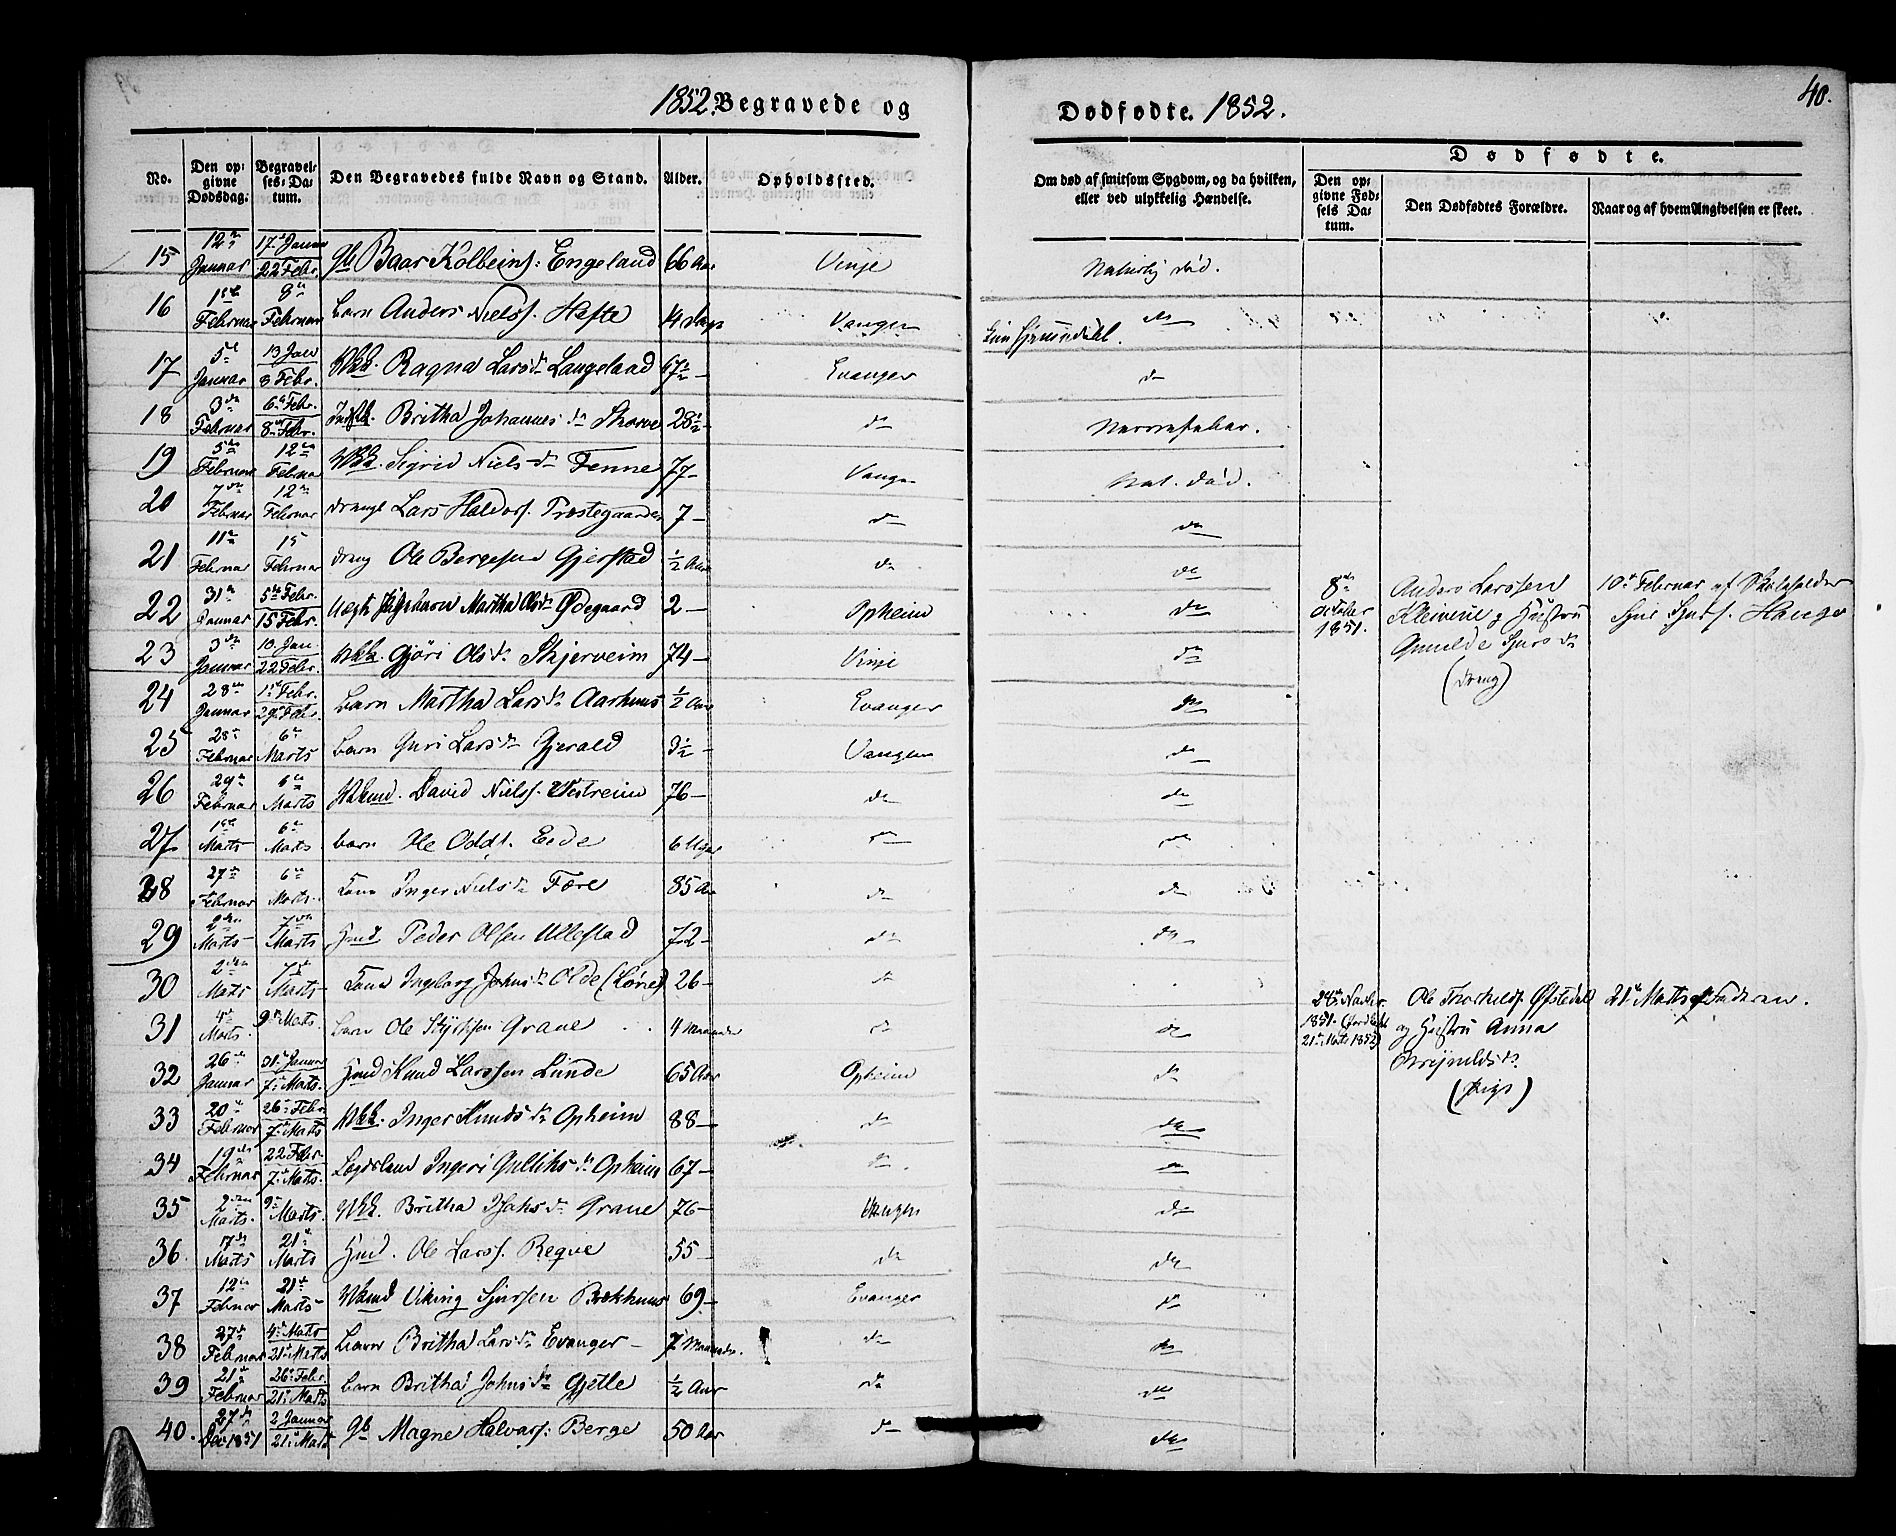 1852. Begravede og
Dødfødte. 1852.
40.
No.
Den opgivne Dødsdag.
Begravelses-Datum.
Den Begravedes fulde Navn og Stand.
Alder.
Opholdssted.
Om død af smitsom Sygdom, og da hvilken, eller ved ulykkelig Hændelse.
Dødfødte.
Den opgivne Fødsels Datum.
Den Dødfødtes Forældre.
Naar og af hvem Angivelsen er skeet.
15 12te Januar 17de Januar 22 Febr. Gb Baar Kolbeins: Engeland 66 Aar Vinje Naturlig død.
16 1ste Februar 8de Februar barn Anders Nielss. Hæfte 14 Dage Vangen do
17 5te Januar 13 Jan 8 Febr. Kkk. Ragna Larsdr Langeland 67½ - Evanger do
18 3de Februar 6te Febr. 8de Febr. Britha Johannesdr Skorve 28½ - do Nervefeber.
19 5te Februar 12te Februar Kkk. Sigrid Nielsdr Tenne 77 - Vangen Nat. død.
20 7de Februar 12te Februar dreng Lars Haldors. Præstegaarden 7 - do do
21 11te Februar 15 Februar dreng Ole Bergesen Gjerstad ½ Aar do do
22 31te Januar 5te Febr. 15 Febr. Martha Olsdr Ødegaard 2 - Opheim do
8de October 1851. Anders Larssen Kleivene og Hustru Gunilde Sjursdr (dreng) 10de Februar af Skoleholder Sjur Sjurs. Hauge
23 3de Januar 10. Jan 22 Febr. Kkk. Gjøri Olsdr Skjerveim 74 - Vinje do
24 28de Januar 1ste Febr. 29de Febr. barn Martha Larsdr Aarhuus ½ Aar Evanger do
25 28de Februar 6te Marts barn Guri Larsdr Gjerald 3½ - Vangen do
26 29de Februar 6te Marts Kkmd. David Nielss. Vestreim 76 - do do
27 1ste Marts 6te Marts barn Ole Odds. Eide 6 Uger do do
28 27de Februar 6te Marts Inger Nielsdr Fære 85 Aar do do
29 2den Marts 7de Marts Hmd Peder Olsen Ullestad 72 - do do
30 2den Marts 7de Marts Ingeborg Johnsdr Olde (Løne) 26 - do
31 4de Marts 9de Marts. barn Ole Styrksen Grane 4 Maaneder do do
28de Novbr. 1851. (jordf. 21de Marts 1852) Ole Thorkilds. Øfstedal og Hustru Anna (Pige) 21de Marts af Faderen.
32 26de Januar 31te Januar 7de Marts. Hmd Knud Larssen Lunde 65 Aar Opheim do
33 20de Februar 26de Febr. 7de Marts Kkk. Inger Knudsdr Opheim 88 - do do
34 19de Februar 22 Febr. 7de Marts. Ingeri Gulliksdr Opheim 67 - do do
35 2den Marts. 9de Marts. Kkk. Britha Johsdr Grane 76 - Vangen do
36. 17de Marts 21de Marts Hmd. Ole Larss. Reqve 55 - do do
37 12te Februar 21de Marts Kkmd Viking Sjursen Brækhuus 69 - Evanger do
38 27de Februar 4de Marts 21de Marts barn Britha Larsdr Evanger - 7 Maaneder. do do
39 21de Februar 26de Febr. 21de Marts barn Britha Johnsdr Gjelle ½ Aar do do
40. 27de Dec 1851 2 Januar 21de Marts Gb Magne Halvars: Berge 50 Aar do do